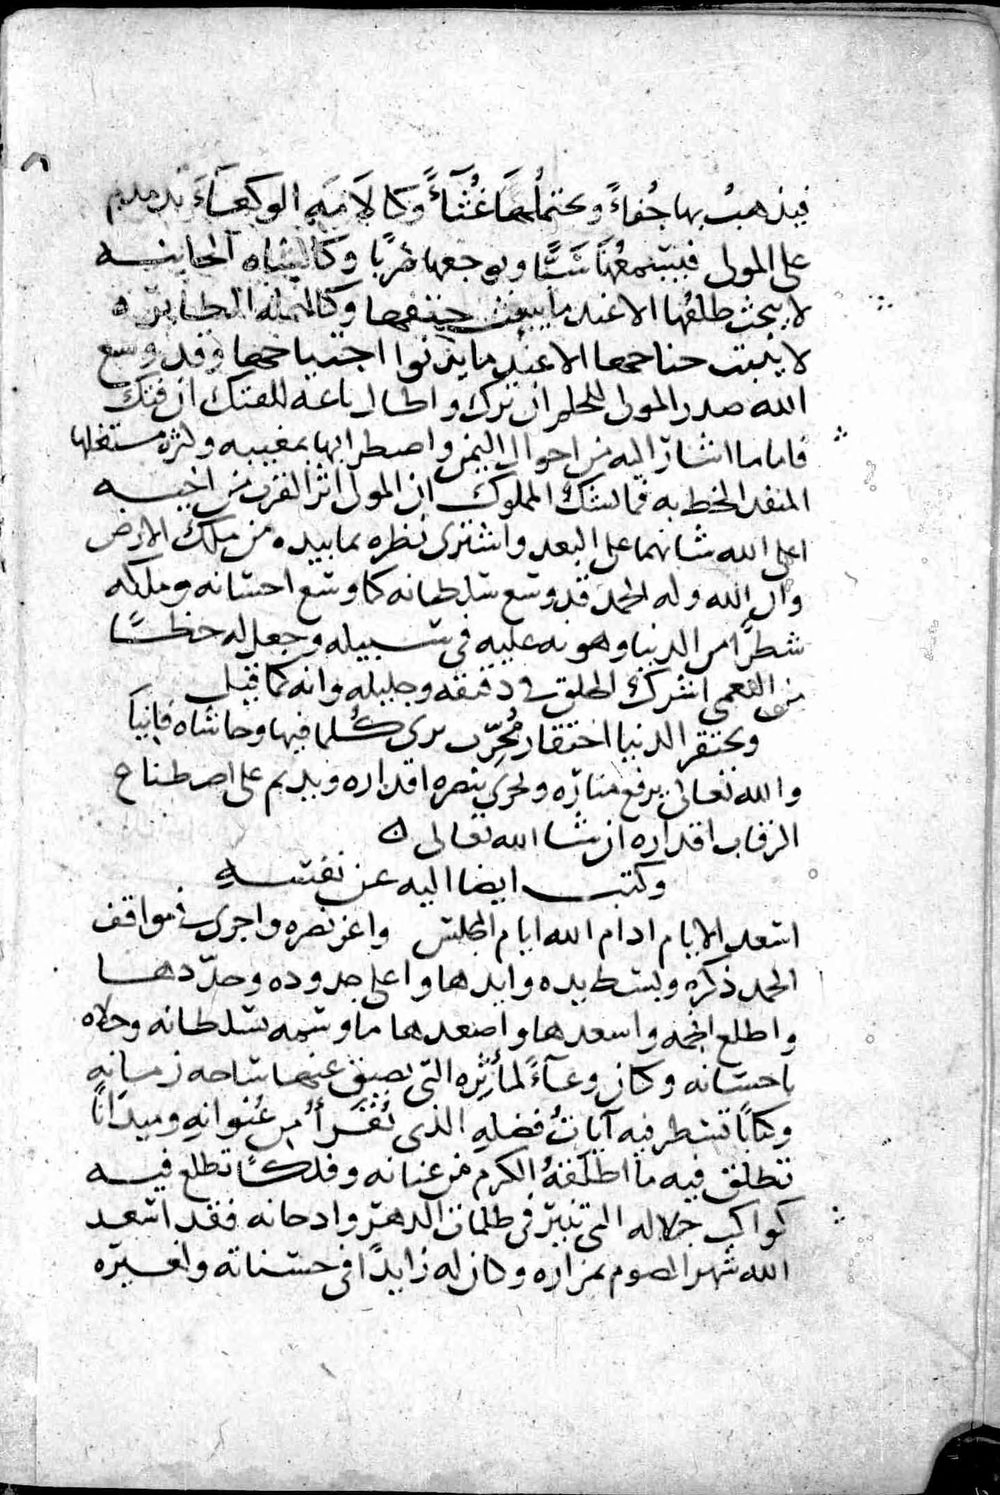 ٨
فيذهب بها جُفاءً ويحتملُها غُثآءً وكالامَةِ الوكعآءَ
على المولى فيسمعُها سَبًّا ويوجعها ضربًا وكالشاه الحاينه
لا يبحث طلفُها الا عند ما يبعث حتفها وكالنمله الطايره
لا ينبت جناحها الا عند ما يدنوا اجتياحها وقد وسع
الله صدر المولى للحلم ان ترك واطال باعه للفتك ان فتك
فاما ما اشار اليه من احوال اليمن واضطرابها بمغيبه وكثره مستغلها
المنفد الخط به فما يشك المملوك ان المولى اثر القرب من اخيه
اعلى الله شانهما على البعد واشترى نظره بما بيده من ملك الارض
وان الله وله الحمد قد وسع سلطانه كما وسع احسانه وملكه
شطرًا من الدنيا وهونه عليه في سبيله وجعل له حظًا
من النعمى اشرك الخلق في دقيقه وجليله وانه كما قيل
ويحتقر الدنيا احتقار مُجرِّب يرى كُلما فيها وحاشاه فانيا
والله تعالى يرفع مناره ويجري بنصره اقداره ويديم على اصطناع
الرقاب اقداره ان شا الله تعالى
وكتب ايضا اليه عن نفسه
اسعد الايام ادام الله ايام المجلس واعز نصره واجرى في مواقف
الحمد ذكره وبسط يده وايدها واعلى جدوده وجدّدها
واطلع انجمه واسعدها واصعدها ما وسمه بسلطانه وحلاه
باحسانه وكان وعآءً لمأثِره التي يضيق عنها ساحه زمانه
وكتابًا تسطر فيه آياتُ فضلهِ الذي تُقرأُ من عُنوانهِ وميدانًا
تطلق فيه ما اطلقهُ الكرم من عنانه وفلكًا تطلع فيه
كواكب جلاله التي تنير في ظلمات الدهر وادجانه فقد اسعد
الله شهر الصوم بمزاره وكان له زايدًا في حسناته واغيره